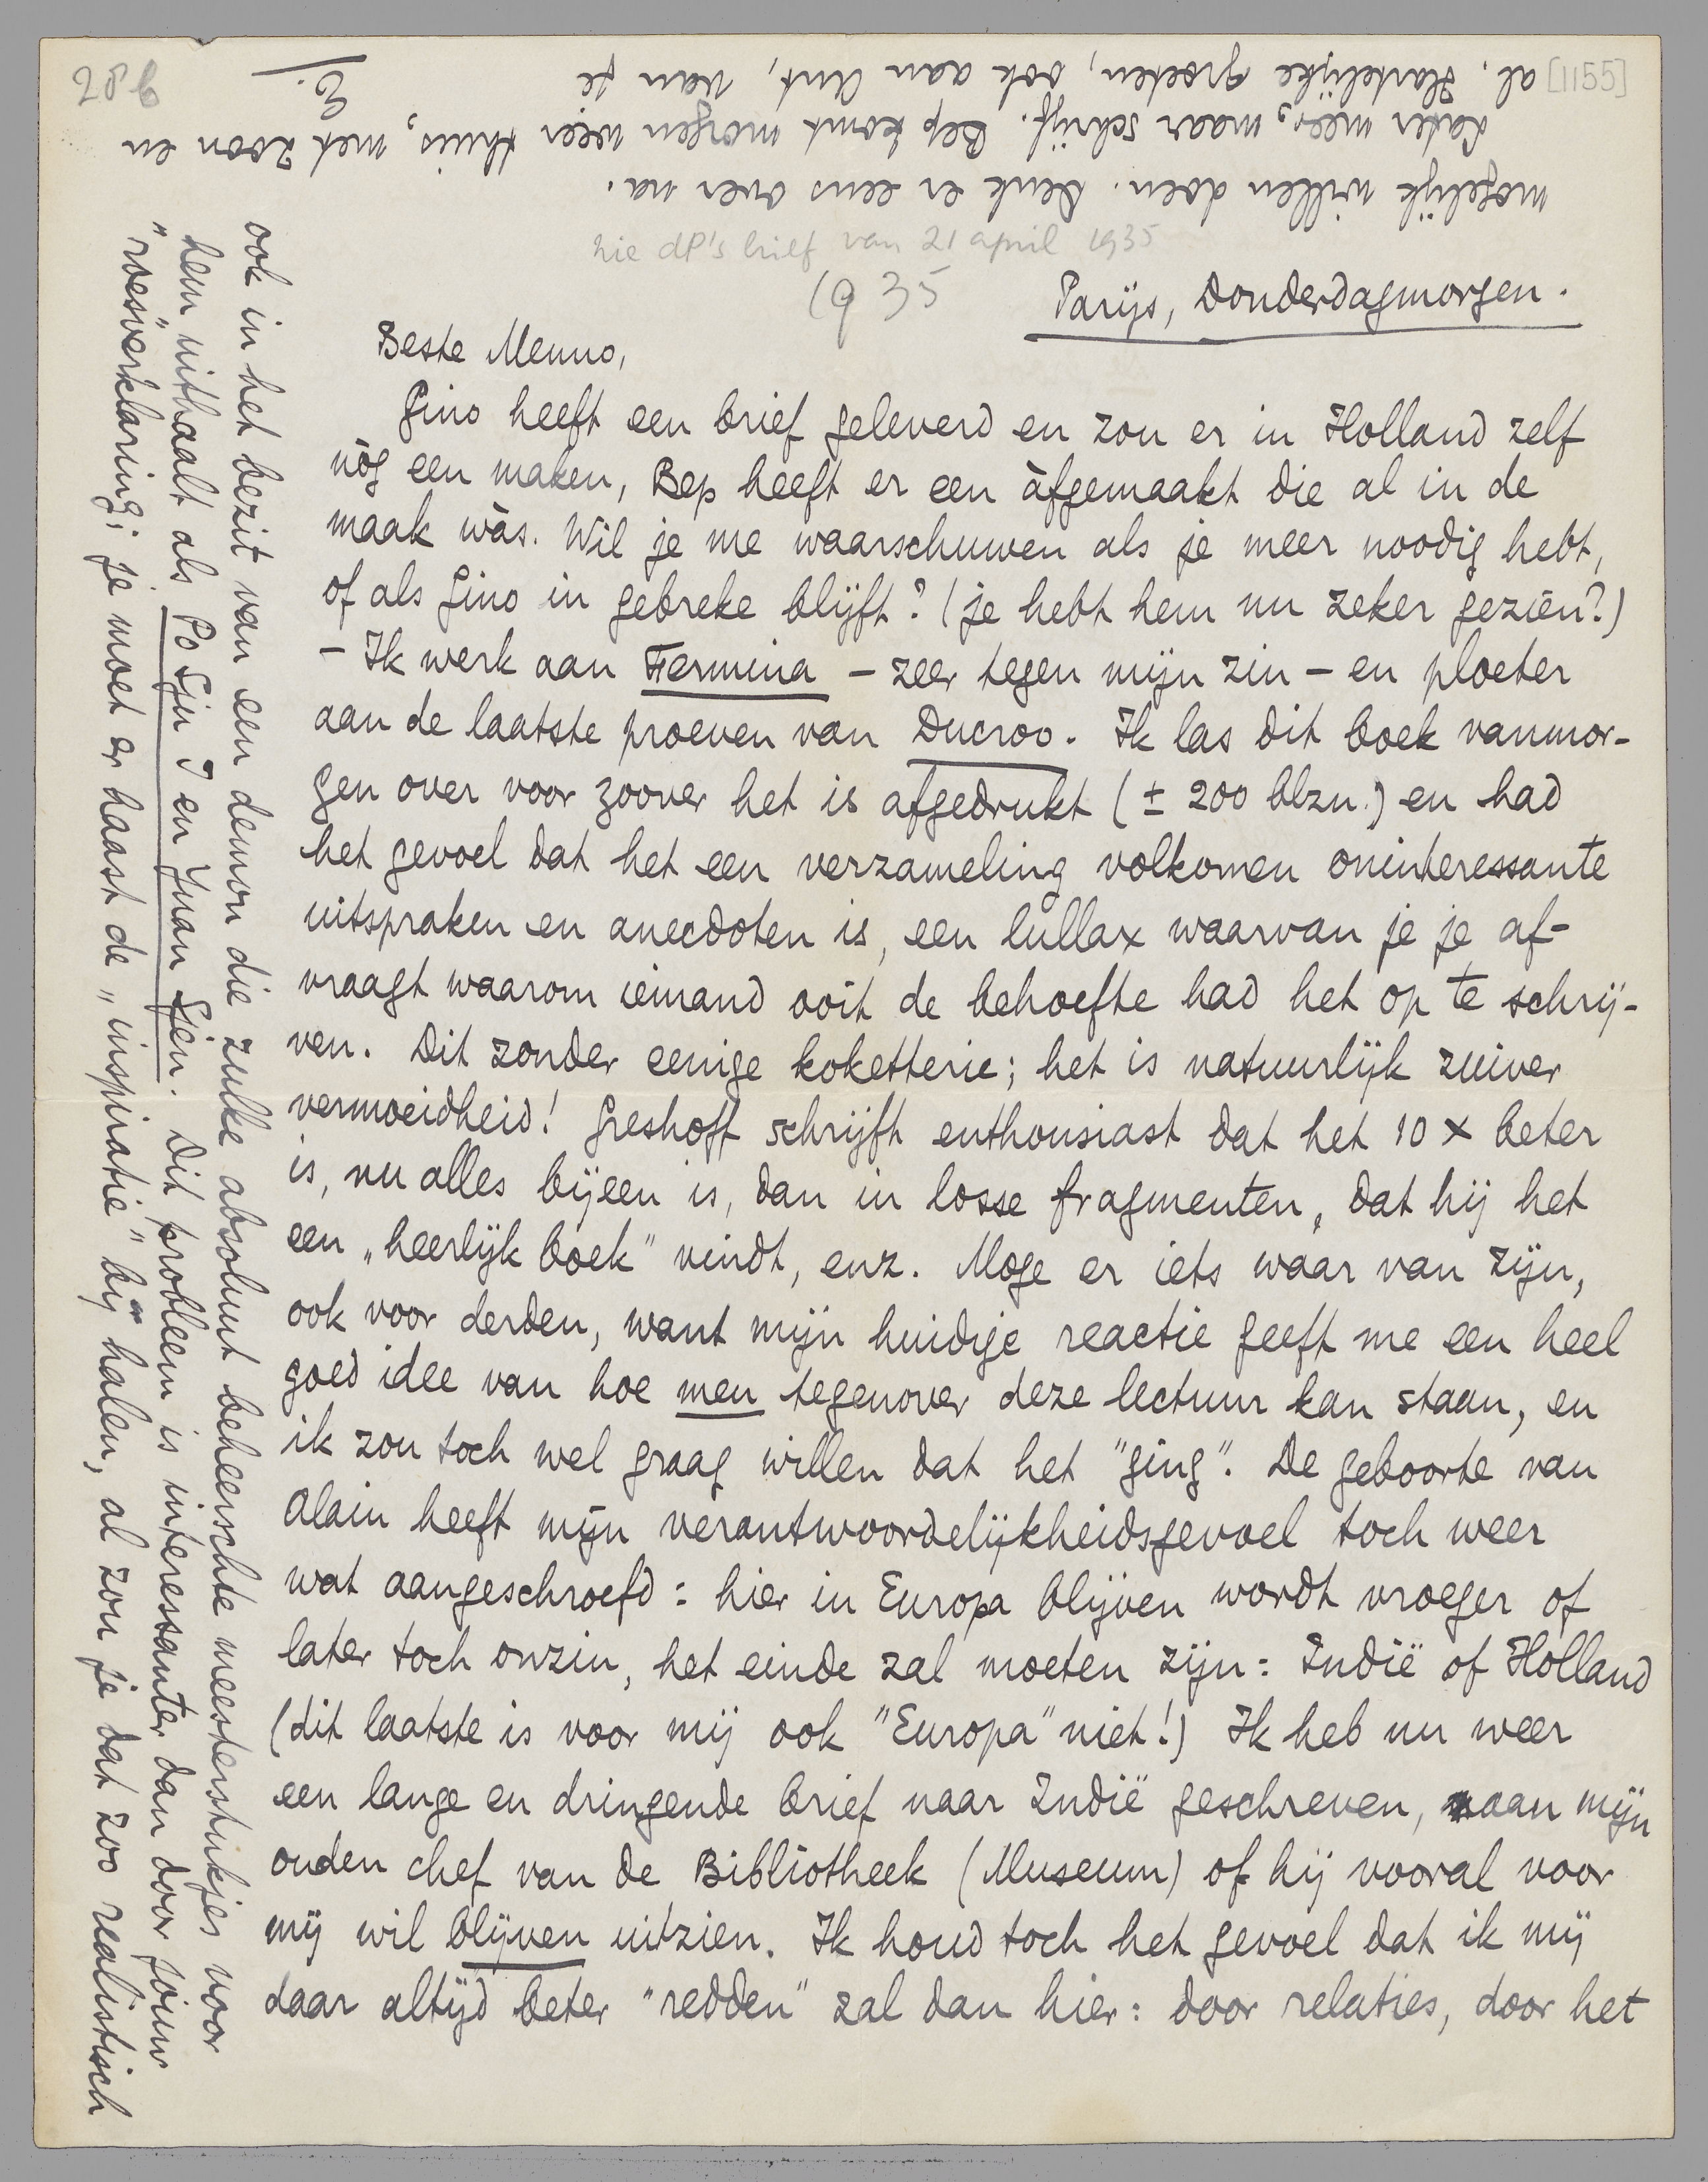 28b
[1155]
zie dP's brief van 21 april 1935
1935
Parijs, Donderdagmorgen.
Beste Menno,
Gino heeft een brief geleverd en zou er in Holland zelf
nòg een maken, Bep heeft er een àfgemaakt die al in de
maak wàs. Wil je me waarschuwen als je meer noodig hebt,
of als Gino in gebreke blijft? (je hebt hem nu zeker gezien?)
- Ik werk aan Fermina - zeer tegen mijn zin - en ploeter
aan de laatste proeven van Ducroo. Ik las dit boek vanmor-
gen over voor zoover het is afgedrukt (± 200 blzn.) en had
het gevoel dat het een verzameling volkomen oninteressante
uitspraken en anecdoten is, een lullax waarvan je je af-
vraagt waarom iemand ooit de behoefte had het op te schrij-
ven. Dit zonder eenige koketterie; het is natuurlijk zuiver
vermoeidheid! Greshoff schrijft enthousiast dat het 10 x beter
is, nu alles bijeen is, dan in losse fragmenten, dat hij het
een „heerlijk boek” vindt, enz. Moge er iets waar van zijn,
ook voor derden, want mijn huidige reactie geeft me een heel
goed idee van hoe men tegenover deze lectuur kan staan, en
ik zou toch wel graag willen dat het "ging". De geboorte van
Alain heeft mijn verantwoordelijkheidsgevoel toch weer
wat aangeschroefd: hier in Europa blijven wordt vroeger of
later toch onzin, het einde zal moeten zijn: Indië of Holland
(dit laatste is voor mij ook "Europa" niet!) Ik heb nu weer
een lange en dringende brief naar Indië geschreven, aan mijn
ouden chef van de Bibliotheek (Museum) of hij vooral voor
mij wil blijven uitzien. Ik houd toch het gevoel dat ik mij
daar altijd beter "redden" zal dan hier: door relaties, door het
ook in het bezit van een demon die zulke absoluut beheerschte meesterstukjes voor
hem uithaalt als Po Sju I en Yuan Sjen. Dit probleem is interessanter dan door jouw
„roes”verklaring; je moet er haast de „inspiratie” bij halen, al zou je dat zoo realistisch
mogelijk willen doen. Denk er eens over na.
Later meer, maar schrijf. Bep komt morgen weer thuis, met zoon en
al. Hartelijke groeten, ook aan Ant, van je
E.